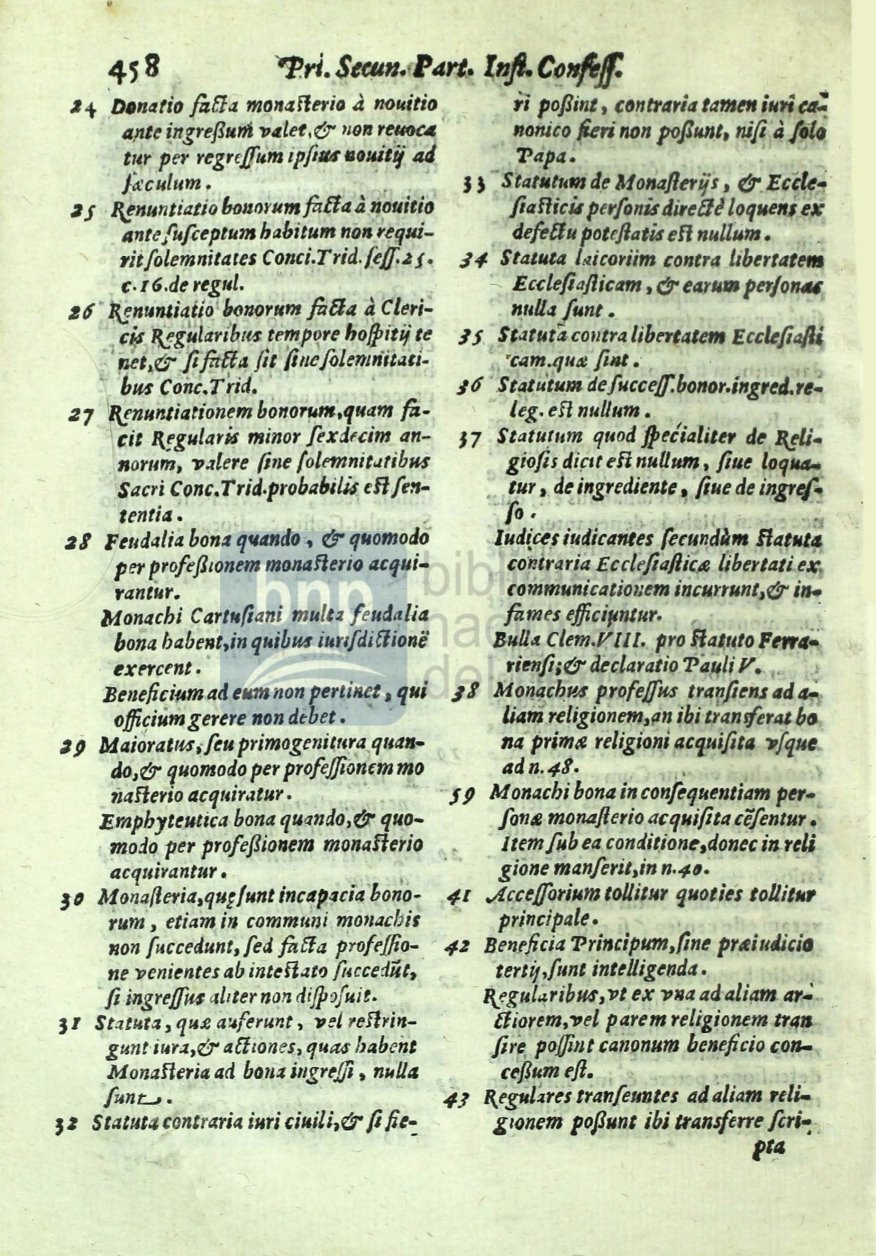 458 Pri. Secun. Part. Inst. Confess.
24 Donatio facta monasterio à nouitio
ante ingreßum valet, & non reuoca
tur per regressum ipsius nouitij ad
sæculum.
25 Renuntiatio bonorum facta à nouitio
ante susceptum habitum non requi-
rit solemnitates Conci.Trid. sess.25.
c.16.de regul.
26 Renuntiatio bonorum facta à Cleri-
cis Regularibus tempore hospitij te
net,& si facta sit sine solemnitati-
bus Conc.Trid.
27 Renuntiationem bonorum,quam fa-
cit Regularis minor sexdecim an-
norum, valere sine solemnitatibus
Sacri Conc.Trid.probabilis est sen-
tentia.
28 Feudalia bona quando, & quomodo
per profeßionem monasterio acqui-
rantur.
Monachi Cartusiani multa feudalia
bona habent,in quibus iurisdictionē
exercent.
Beneficium ad eum non pertinet, qui
officium gerere non debet.
29 Maioratus, seu primogenitura quan-
do,& quomodo per professionem mo
nasterio acquiratur.
Emphyteutica bona quando,& quo-
modo per profeßionem monasterio
acquirantur.
30 Monasteria,quę sunt incapacia bono-
rum, etiam in communi monachis
non succedunt, sed facta professio-
ne venientes ab intestato succedūt,
si ingressus aliter non disposuit.
31 Statuta, quæ auferunt, vel restrin-
gunt iura,& actiones, quas habent
Monasteria ad bona ingressi, nulla
sunt.
32 Statuta contraria iuri ciuili,& si fie-
ri poßint, contraria tamen iuri ca-
nonico fieri non poßunt, nisi à solo
Papa.
33 Statutum de Monasterijs, & Eccle-
siasticis personis directè loquens ex
defectu potestatis est nullum.
34 Statuta laicorum contra libertatem
Ecclesiasticam, & earum personas
nulla sunt.
35 Statuta contra libertatem Ecclesiasti
cam.quæ sint.
36 Statutum de success.bonor.ingred.re-
leg. est nullum.
37 Statutum quod specialiter de Reli-
giosis dicit est nullum, siue loqua-
tur, de ingrediente, siue de ingres-
so.
Iudices iudicantes secundùm statuta
contraria Ecclesiasticæ libertati ex
communicationem incurrunt,& in-
fames efficiuntur.
Bulla Clem.VIII. pro statuto Ferra-
riensi;& declaratio Pauli V.
38 Monachus professus transiens ad a-
liam religionem,an ibi transferat bo
na primæ religioni acquisita vsque
ad n.48.
59 Monachi bona in consequentiam per-
sonæ monasterio acquisita cēsentur.
Item sub ea conditione,donec in reli
gione manserit,in n.40.
41 Accessorium tollitur quoties tollitur
principale.
42 Beneficia Principum,sine præiudicio
tertij,sunt intelligenda.
Regularibus,vt ex vna ad aliam ar-
ctiorem,vel parem religionem tran
sire possint canonum beneficio con-
ceßum est.
43 Regulares transeuntes ad aliam reli-
gionem poßunt ibi transferre scri-
pta
bnp